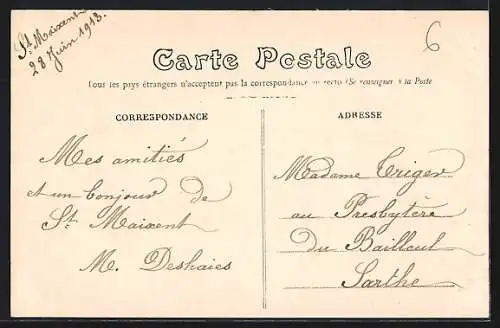 St Maixent
28 Juin 1913.
6
Carte Postale
Tous les pays étrangers n'acceptent pas la correspondance au recto (Se renseigner à la Poste
CORRESPONDANCE
Mes amitiés
et un bonjour de
St. Maixent
M. Deshaies
ADRESSE
Madame Triger
au Presbytère
du Bailleul
Sarthe